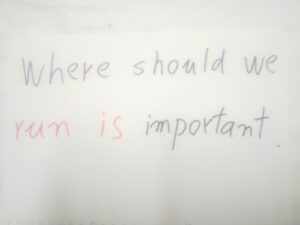 Where should we
run is important.